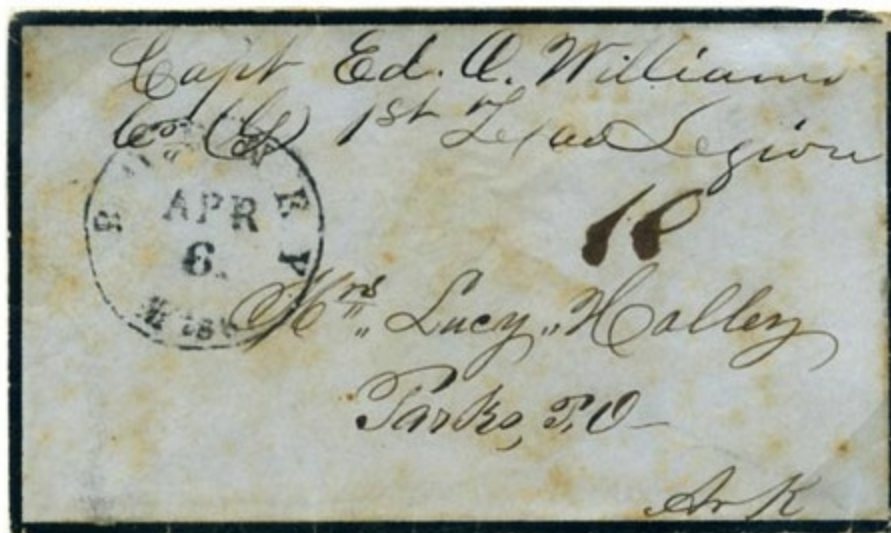 Capt Ed. O. Williams
Co. G 1st Texas Legion
APR
6.
Miss
10
Mrs. Lucy Holley
Parks, P.O
Ark